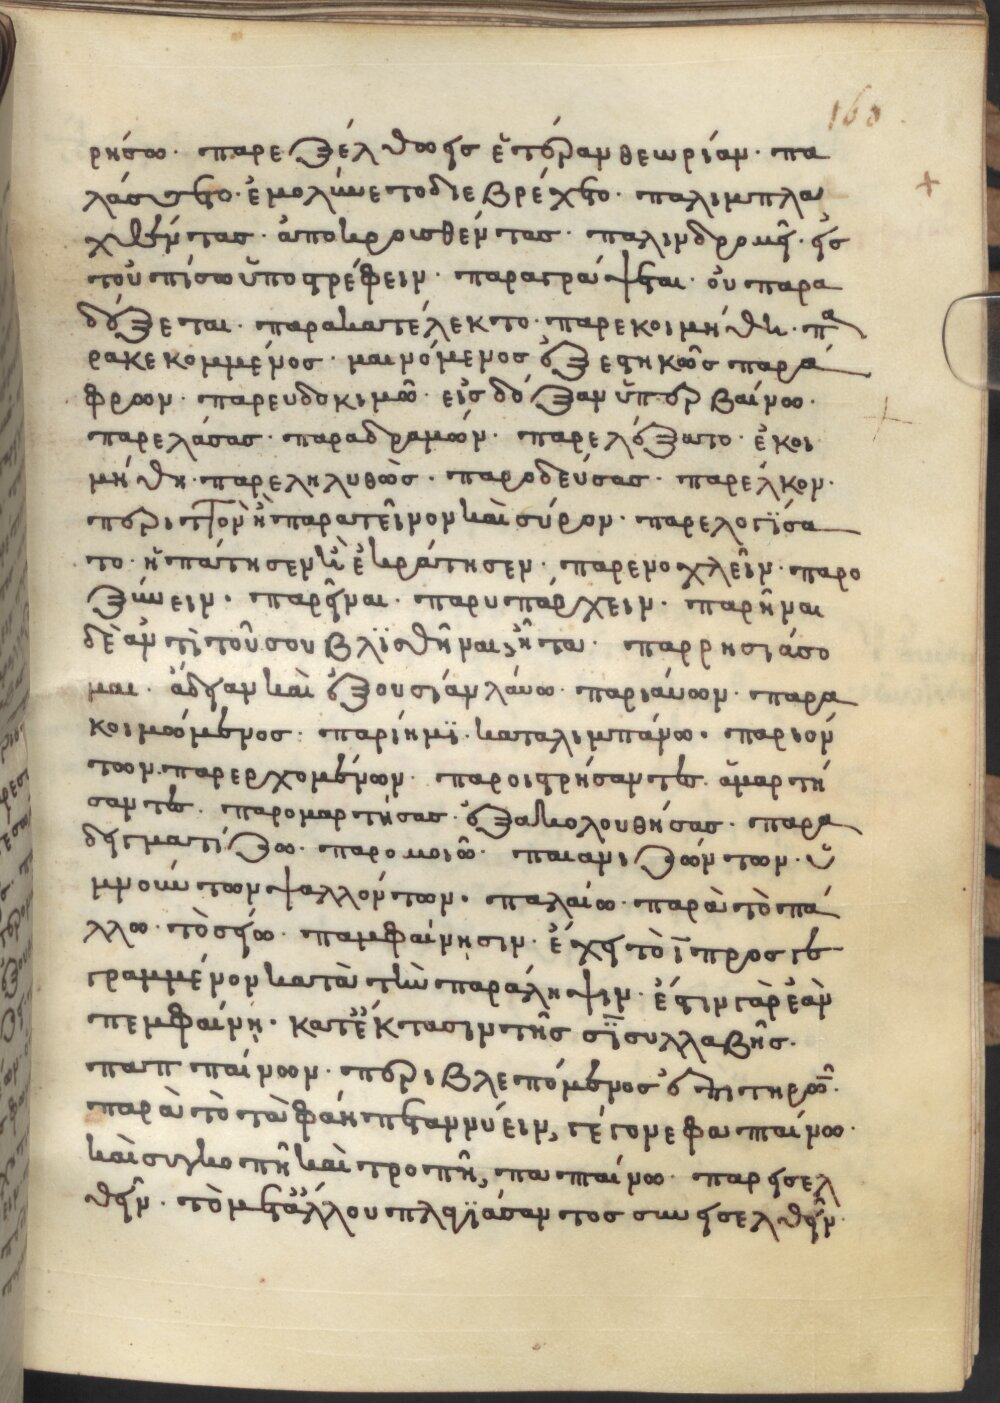 160
ρήσω· παρεξέλθω εἰς ἑτέραν θεωρίαν· πα
λάσσετο· ἐμολύνετο διεβρέχετο· παλιμπλα
χθέντας· ἀποκρουσθέντας· παλινδρομεῖ· εἰς
τοὐπίσω ὑποστρέφειν· παραγράψεται· οὐ παρα
δέξεται· παρακατέλεκτο· παρεκοιμήθη· πα
ρακεκομμένος· μαινόμενος ἐξεστηκὼς παρά
φρων· παρευδοκιμῶ· εἰς δόξαν ὑπερβαίνω·
παρελάσας· παραδραμών· παρελέξατο· ἐκοι
μήθη· παρεληλυθὼς· παροδεύσας· παρέλκον·
περιττὸν ἢ παρατεῖνον καὶ σύρον· παρελογίσα
το· ἠπάτησεν καὶ ἐκράτησεν· παρενοχλεῖν· παρο
ξύνειν· παρεῖναι· παρυπάρχειν· παρῆναι
δὲ ἀντὶ τοῦ συμβλιθῆναι, ἦτα· παρρησιάσο
μαι· ἄδειαν καὶ ἐξουσίαν λάβω· παριαύων· παρα
κοιμώμενος· παρίημι· καταλιμπάνω· παριόν
των παρερχομένων· παροιστρήσαντες· ἁμαρτή
σαντες· παρομαρτήσας· ἐξακολουθήσας· παρα
δειγματίζω· παρομοιῶ· παιανιζόντων· ὑ
μνούντων ψαλλόντων· παλαίω· παρὰ τὸ πά
λλω· τὸ σείω· παμφαίνησιν· ἔχει τὸ ϊ προσγε
γραμμένον κατὰ τὴν παράληψιν· ἔστιν γὰρ ἐὰν
πεμφαίνῃ· κατ' ἔκτασιν τῆς σϊ συλλαβῆς·
παππαίνων· περιβλεπόμενος ἐπιτηρῶν·
παρὰ τὸ τὰ φάη πεταννύειν, γέγονε φαπαίνω·
καὶ συγκοπῇ καὶ τροπῇ, παπαίνω· παρεισελ
θεῖν· τὸ μετ' ἄλλου πλησιάσαντος συνεισελθεῖν·